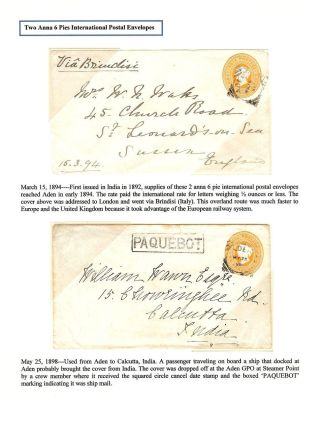 Two Anna 6 Pies International Postal Envelopes
Via Brindisi
Mrs W. N. Wraks
45. Church Road.
St Leonard's on Sea
Sussex
England
15.3.94.
March 15, 1894----First issued in India in 1892, supplies of these 2 anna 6 pie international postal envelopes
reached Aden in early 1894. The rate paid the international rate for letters weighing ½ ounces or less. The
cover above was addressed to London and went via Brindisi (Italy). This overland route was much faster to
Europe and the United Kingdom because it took advantage of the European railway system.
PAQUEBOT
William Esqre
15. Chowringhee Rd.
Calcutta.
India
May 25, 1898---Used from Aden to Calcutta, India. A passenger traveling on board a ship that docked at
Aden probably brought the cover from India. The cover was dropped off at the Aden GPO at Steamer Point
by a crew member where it received the squared circle cancel date stamp and the boxed 'PAQUEBOT'
marking indicating it was ship mail.